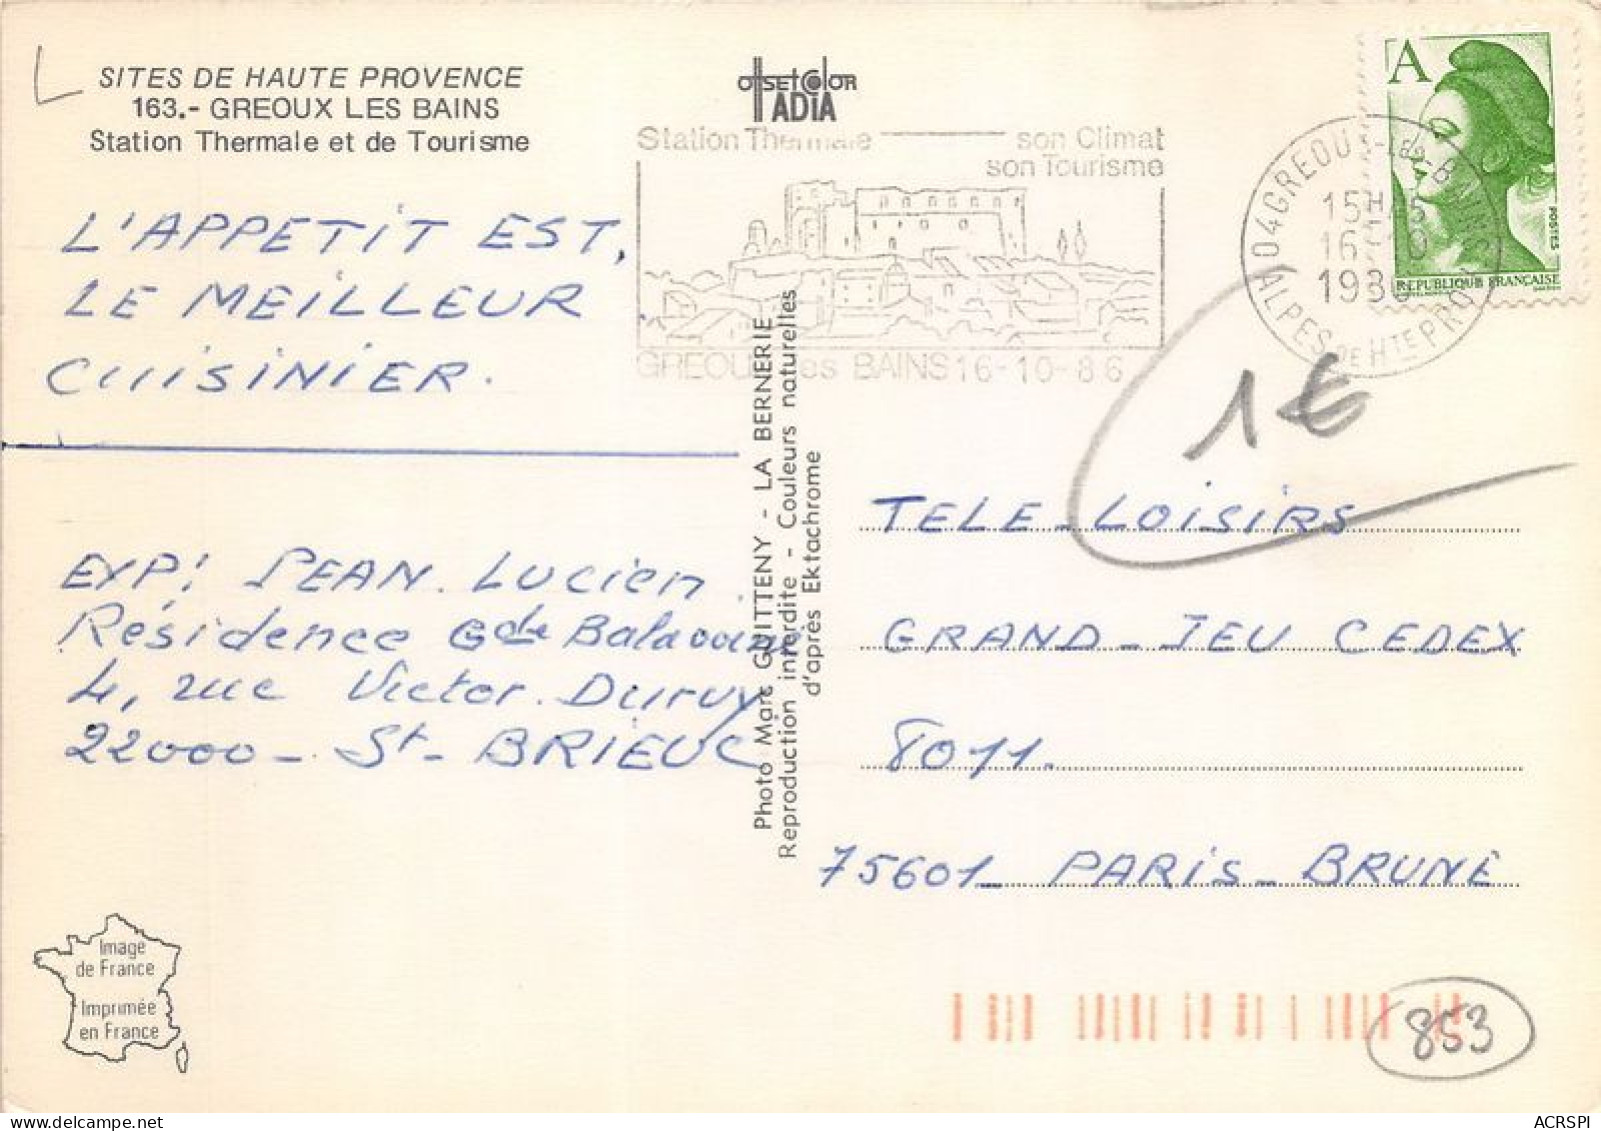 SITES DE HAUTE PROVENCE
163.- GREOUX LES BAINS
Station Thermale et de Tourisme
OffsetColor
ADIA
Station Thermale son Climat
son Tourisme
GREOUX les BAINS 16-10-86
A
POSTES
REPUBLIQUE FRANÇAISE
04 GREOUX-LES-BAINS
ALPES DE HTE PROV.
15H15
1986
L'APPETIT EST,
LE MEILLEUR
CUISINIER.
1€
EXP: JEAN. Lucien
Résidence Gde
4, rue Victor. Duruy
22000 - St - BRIEUC
Photo Marc GUITTENY - LA BERNERIE
Reproduction interdite - Couleurs naturelles
d'après Ektachrome
TELE-LOISIRS
GRAND-JEU CEDEX
8011.
75601 - PARIS-BRUNE
Image
de France
Imprimée
en France
853
ACRSPI